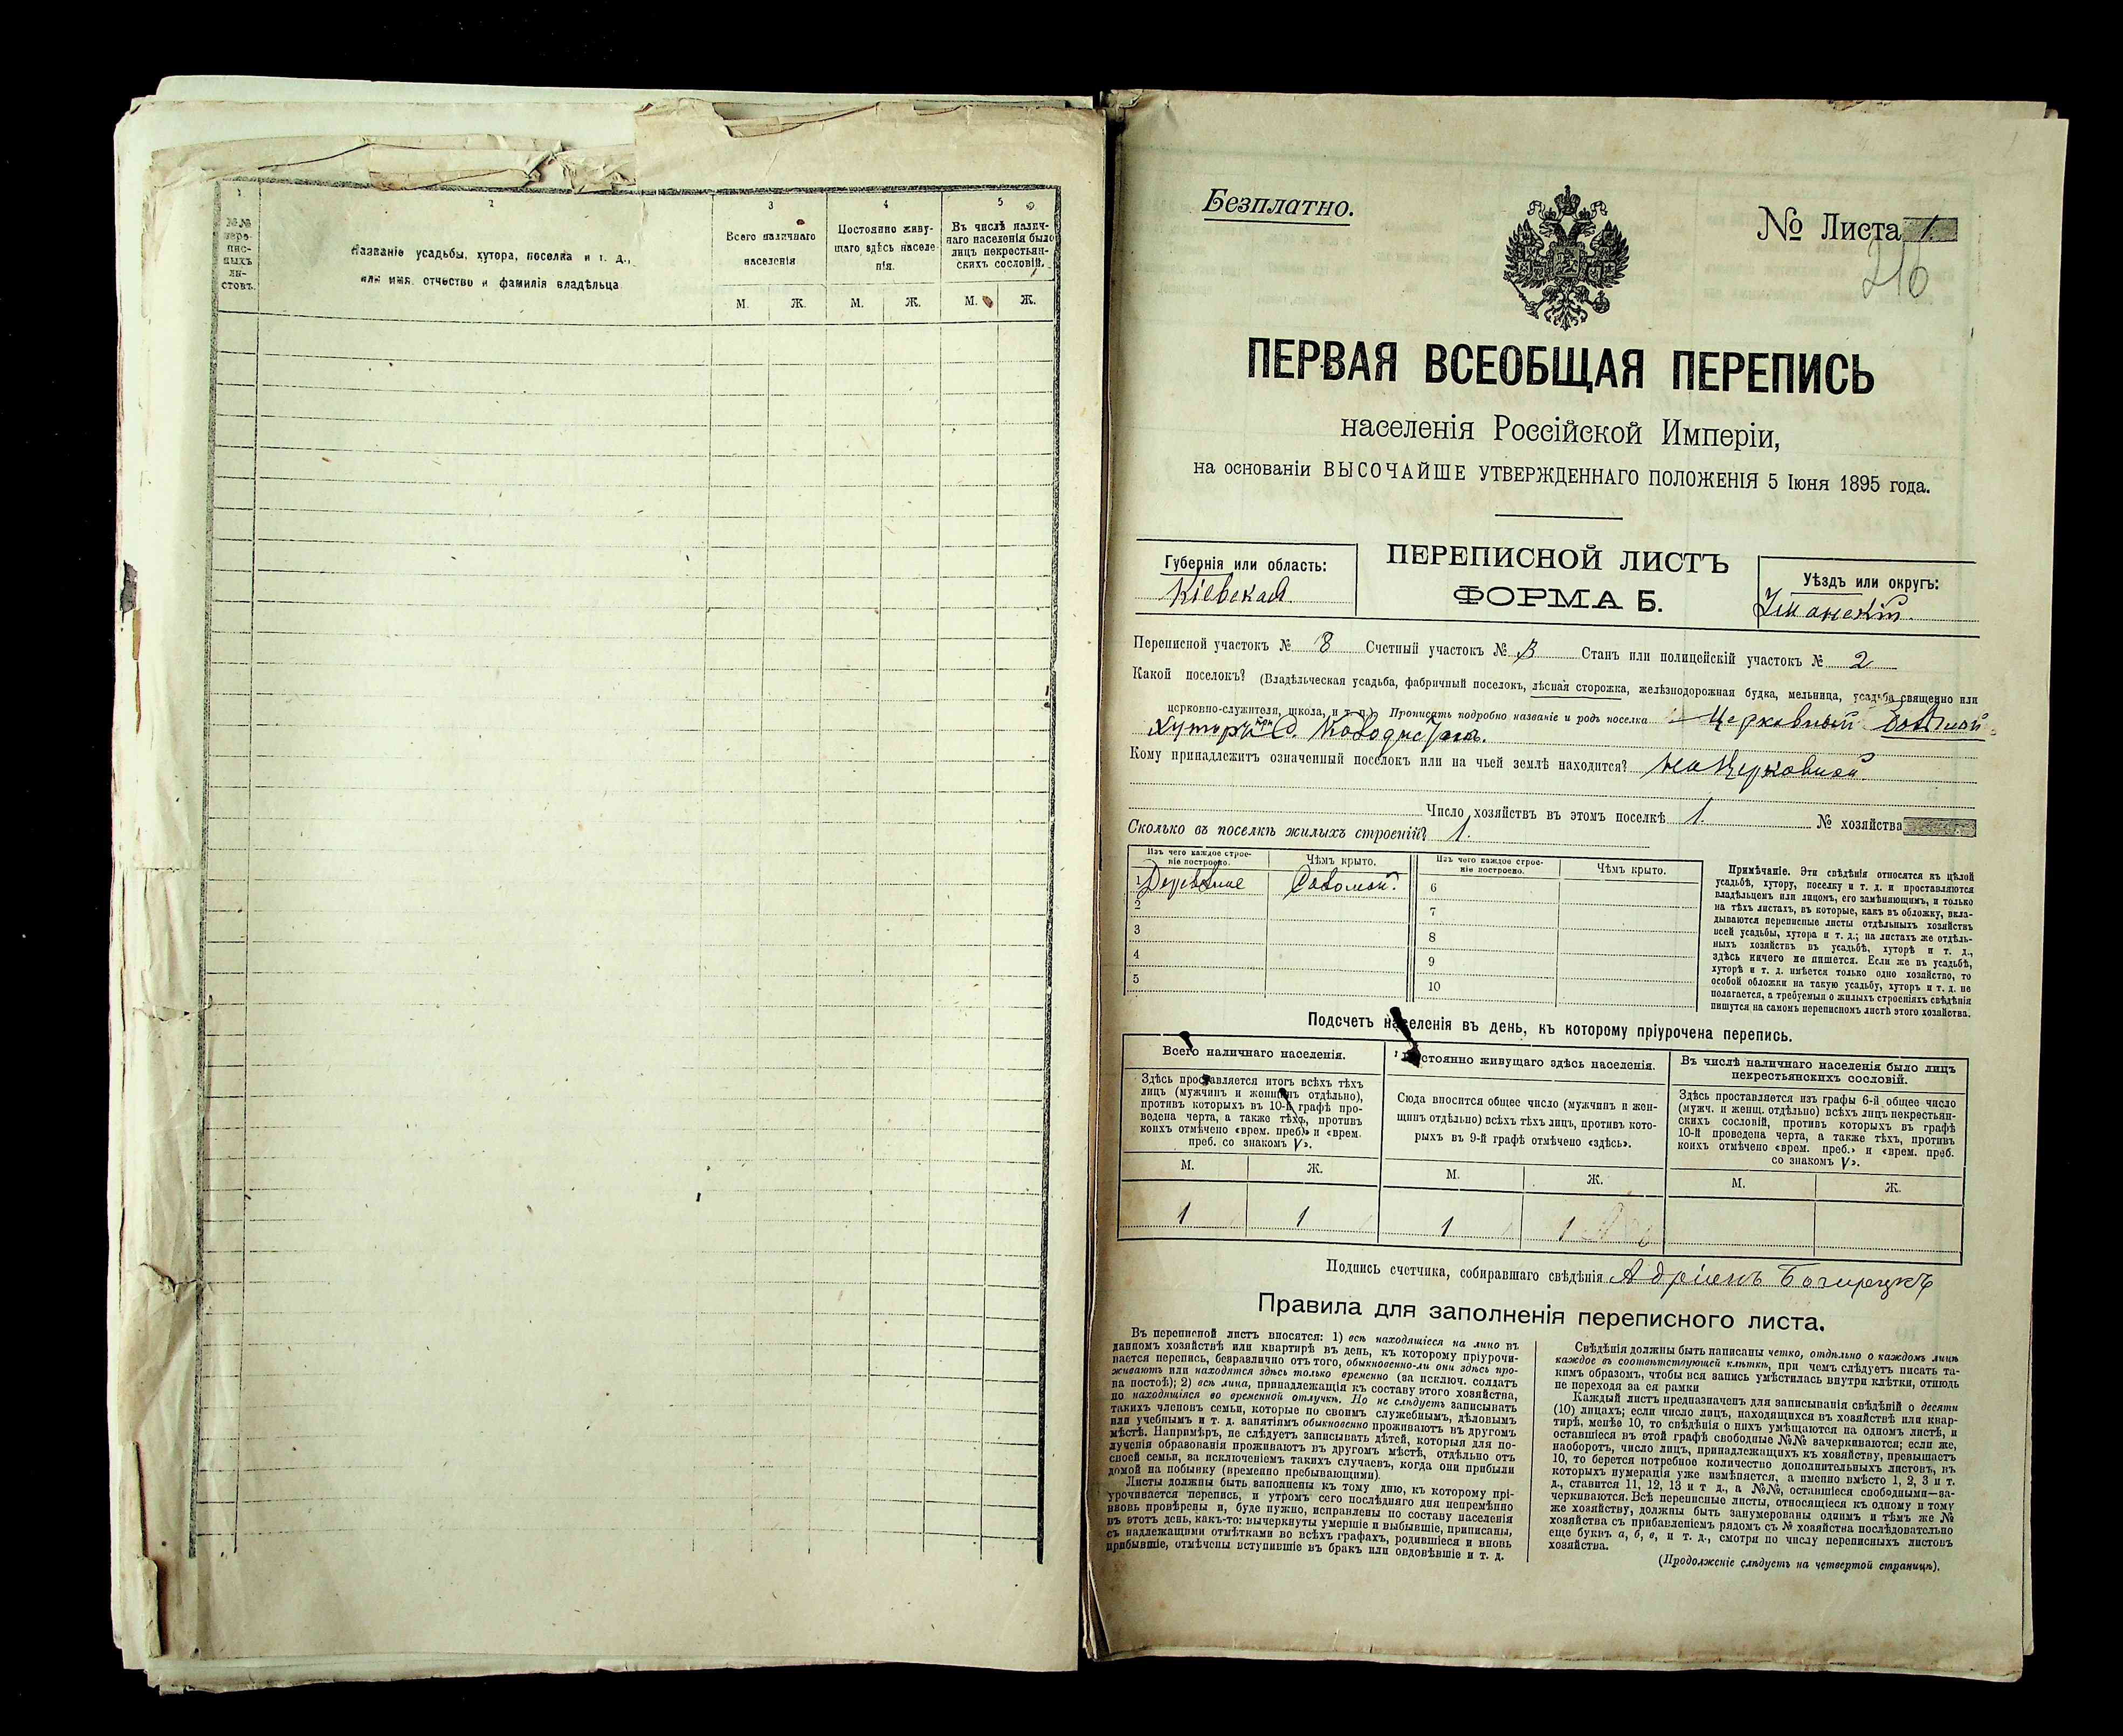 1
2
3
4
5
№№
пере-
пис-
ныхъ
ли-
стовъ.
Названіе усадьбы, хутора, поселка и т. д.,
или имя, отчество и фамилія владѣльца
Всего наличнаго
населенія
Постоянно живу-
щаго здѣсь населе-
нія.
Въ числѣ налич-
наго населенія было
лицъ некрестьян-
скихъ сословій.
М.
Ж.
М.
Ж.
М.
Ж.
Безплатно.
№ Листа 1
216
ПЕРВАЯ ВСЕОБЩАЯ ПЕРЕПИСЬ
населенія Россійской Имперіи,
на основаніи ВЫСОЧАЙШЕ УТВЕРЖДЕННАГО ПОЛОЖЕНІЯ 5 Іюня 1895 года.
Губернія или область:
Кіевская
ПЕРЕПИСНОЙ ЛИСТЪ
ФОРМА Б.
Уѣздъ или округъ:
Уманскій.
Переписной участокъ № 8 Счетный участокъ № Станъ или полицейскій участокъ № 2
Какой поселокъ? (Владѣльческая усадьба, фабричный поселокъ, лѣсная сторожка, желѣзнодорожная будка, мельница, усадьба священно или
церковно-служителя, школа, и т. п.). Прописать подробно названіе и родъ поселка Церковный
Хуторъ при с.
Кому принадлежитъ означенный поселокъ или на чьей землѣ находится? на Церковной
Число хозяйствъ въ этомъ поселкѣ 1. № хозяйства
Сколько въ поселкѣ жилыхъ строеній? 1.
Изъ чего каждое строе-
ніе построено.
Чѣмъ крыто.
Изъ чего каждое строе-
ніе построено.
Чѣмъ крыто.
1 Соломой.
2
3
4
5
6
7
8
9
10
Примѣчаніе. Эти свѣдѣнія относятся къ цѣлой
усадьбѣ, хутору, поселку и т. д. и проставляются
владѣльцемъ или лицомъ, его замѣняющимъ, и только
на тѣхъ листахъ, въ которые, какъ въ обложку, вкла-
дываются переписные листы отдѣльныхъ хозяйствъ
всей усадьбы, хутора и т. д.; на листахъ же отдѣль-
ныхъ хозяйствъ въ усадьбѣ, хуторѣ и т. д.,
здѣсь ничего не пишется. Если же въ усадьбѣ,
хуторѣ и т. д. имѣется только одно хозяйство, то
особой обложки на такую усадьбу, хуторъ и т. д. не
полагается, а требуемыя о жилыхъ строеніяхъ свѣдѣнія
пишутся на самомъ переписномъ листѣ этого хозяйства.
Подсчетъ населенія въ день, къ которому пріурочена перепись.
Всего наличнаго населенія.
Здѣсь проставляется итогъ всѣхъ тѣхъ
лицъ (мужчинъ и женщинъ отдѣльно),
противъ которыхъ въ 10-й графѣ про-
ведена черта, а также тѣхъ, противъ
коихъ отмѣчено «врем. преб.» и «врем.
преб. со знакомъ V».
Постоянно живущаго здѣсь населенія.
Сюда вносится общее число (мужчинъ и жен-
щинъ отдѣльно) всѣхъ тѣхъ лицъ, противъ кото-
рыхъ въ 9-й графѣ отмѣчено «здѣсь».
Въ числѣ наличнаго населенія было лицъ
некрестьянскихъ сословій.
Здѣсь проставляется изъ графы 6-й общее число
(мужч. и женщ. отдѣльно) всѣхъ лицъ некрестьян-
скихъ сословій, противъ которыхъ въ графѣ
10-й проведена черта, а также тѣхъ, противъ
коихъ отмѣчено «врем. преб.» и «врем. преб.
со знакомъ V».
М.
Ж.
М.
Ж.
М.
Ж.
1
1
1
1
Подпись счетчика, собиравшаго свѣдѣнія
Правила для заполненія переписного листа.
Въ переписной листъ вносятся: 1) всѣ находящіеся на лицо въ
данномъ хозяйствѣ или квартирѣ въ день, къ которому пріурочи-
вается перепись, безразлично отъ того, обыкновенно-ли они здѣсь про-
живаютъ или находятся здѣсь только временно (за исключ. солдатъ
на постоѣ); 2) всѣ лица, принадлежащія къ составу этого хозяйства,
но находящіяся во временной отлучкѣ. Но не слѣдуетъ записывать
такихъ членовъ семьи, которые по своимъ служебнымъ, дѣловымъ
или учебнымъ и т. д. занятіямъ обыкновенно проживаютъ въ другомъ
мѣстѣ. Напримѣръ, не слѣдуетъ записывать дѣтей, которыя для по-
лученія образованія проживаютъ въ другомъ мѣстѣ, отдѣльно отъ
своей семьи, за исключеніемъ такихъ случаевъ, когда они прибыли
домой на побывку (временно пребывающими).
Листы должны быть заполнены къ тому дню, къ которому прі-
урочивается перепись, и утромъ сего послѣдняго дня непремѣнно
вновь провѣрены и, буде нужно, исправлены по составу населенія
въ этотъ день, какъ-то: вычеркнуты умершіе и выбывшіе, приписаны,
съ надлежащими отмѣтками во всѣхъ графахъ, родившіеся и вновь
прибывшіе, отмѣчены вступившіе въ бракъ или овдовѣвшіе и т. д.
Свѣдѣнія должны быть написаны четко, отдѣльно о каждомъ лицѣ
каждое въ соотвѣтствующей клѣткѣ, при чемъ слѣдуетъ писать та-
кимъ образомъ, чтобы вся запись умѣстилась внутри клѣтки, отнюдь
не переходя за ея рамки
Каждый листъ предназначенъ для записыванія свѣдѣній о десяти
(10) лицахъ; если число лицъ, находящихся въ хозяйствѣ или квар-
тирѣ, менѣе 10, то свѣдѣнія о нихъ умѣщаются на одномъ листѣ, и
оставшіеся въ этой графѣ свободные №№ зачеркиваются; если же,
наоборотъ, число лицъ, принадлежащихъ къ хозяйству, превышаетъ
10, то берется потребное количество дополнительныхъ листовъ, въ
которыхъ нумерація уже измѣняется, а именно вмѣсто 1, 2, 3 и т.
д., ставится 11, 12, 13 и т д., а №№, оставшіеся свободными—за-
черкиваются. Всѣ переписные листы, относящіеся къ одному и тому
же хозяйству, должны быть занумерованы однимъ и тѣмъ же №
хозяйства съ прибавленіемъ рядомъ съ № хозяйства послѣдовательно
еще буквъ а, б, в, и т. д., смотря по числу переписныхъ листовъ
хозяйства.
(Продолженіе слѣдуетъ на четвертой страницѣ).